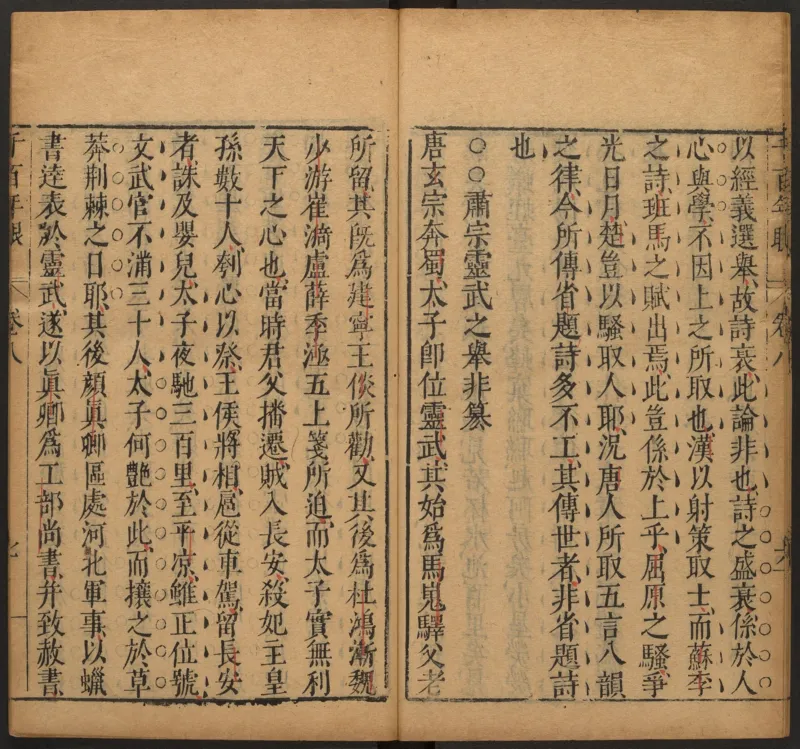 以經義選舉故詩衰此論非也詩之盛衰係於人
心與學不因上之所取也漢以射策取士而蘇李
之詩班馬之賦出焉此豈係於上乎屈原之騷爭
光日月楚豈以騷取人耶況唐人所取五言八韻
之律今所傳省題詩多不工其傳世者非省題詩
也
○○肅宗靈武之舉非篡
唐玄宗奔蜀太子卽位靈武其始爲馬嵬驛父老
所留其既爲建寧王倓所勸又其後爲杜鴻漸魏
少游崔漪盧薛季逓五上箋所迫而太子實無利
天下之心也當時君父播遷賊入長安殺妃主皇
孫數十人刳心以祭王侯將相扈從車駕留長安
者誅及嬰兒太子夜馳三百里至平凉雖正位號
文武官不滿三十人太子何艷於此而攘之於草
莽荆棘之日耶其後顔眞卿區處河北軍事以蠟
書達表於靈武遂以眞卿爲工部尚書并致赦書
千百年眼
卷八
七